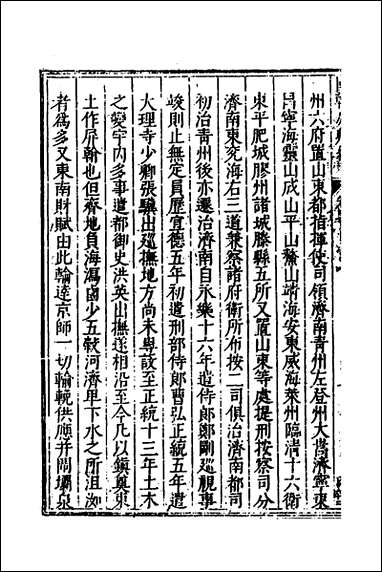 州六府置山東都指揮使司領濟南青州左登州大嵩濟寧東
昌寧海靈山成山平山鰲山靖海安東威海萊州臨清十六衛
東平肥城膠州諸城滕縣五所又置山東等處提刑按察司分
濟南東兗海右三道兼察諸府衛所布按二司俱治濟南都司
初治青州後亦遷治濟南自永樂十六年遣侍郎鄭剛巡覛事
峻則止無定員歷宣德五年初遣刑部侍郎曹弘正統五年遣
大理寺少卿張驥出巡撫地方尚未專設至正統十三年土木
之變宇內多事遣都御史洪英出撫遂相沿至今凡以鎮奠東
土作屏翰也但齊地負海潟鹵少五穀河濟卑下水之所沮洳
者為多又東南財賦由此輸達京師一切輸輓供應并閘壩泉